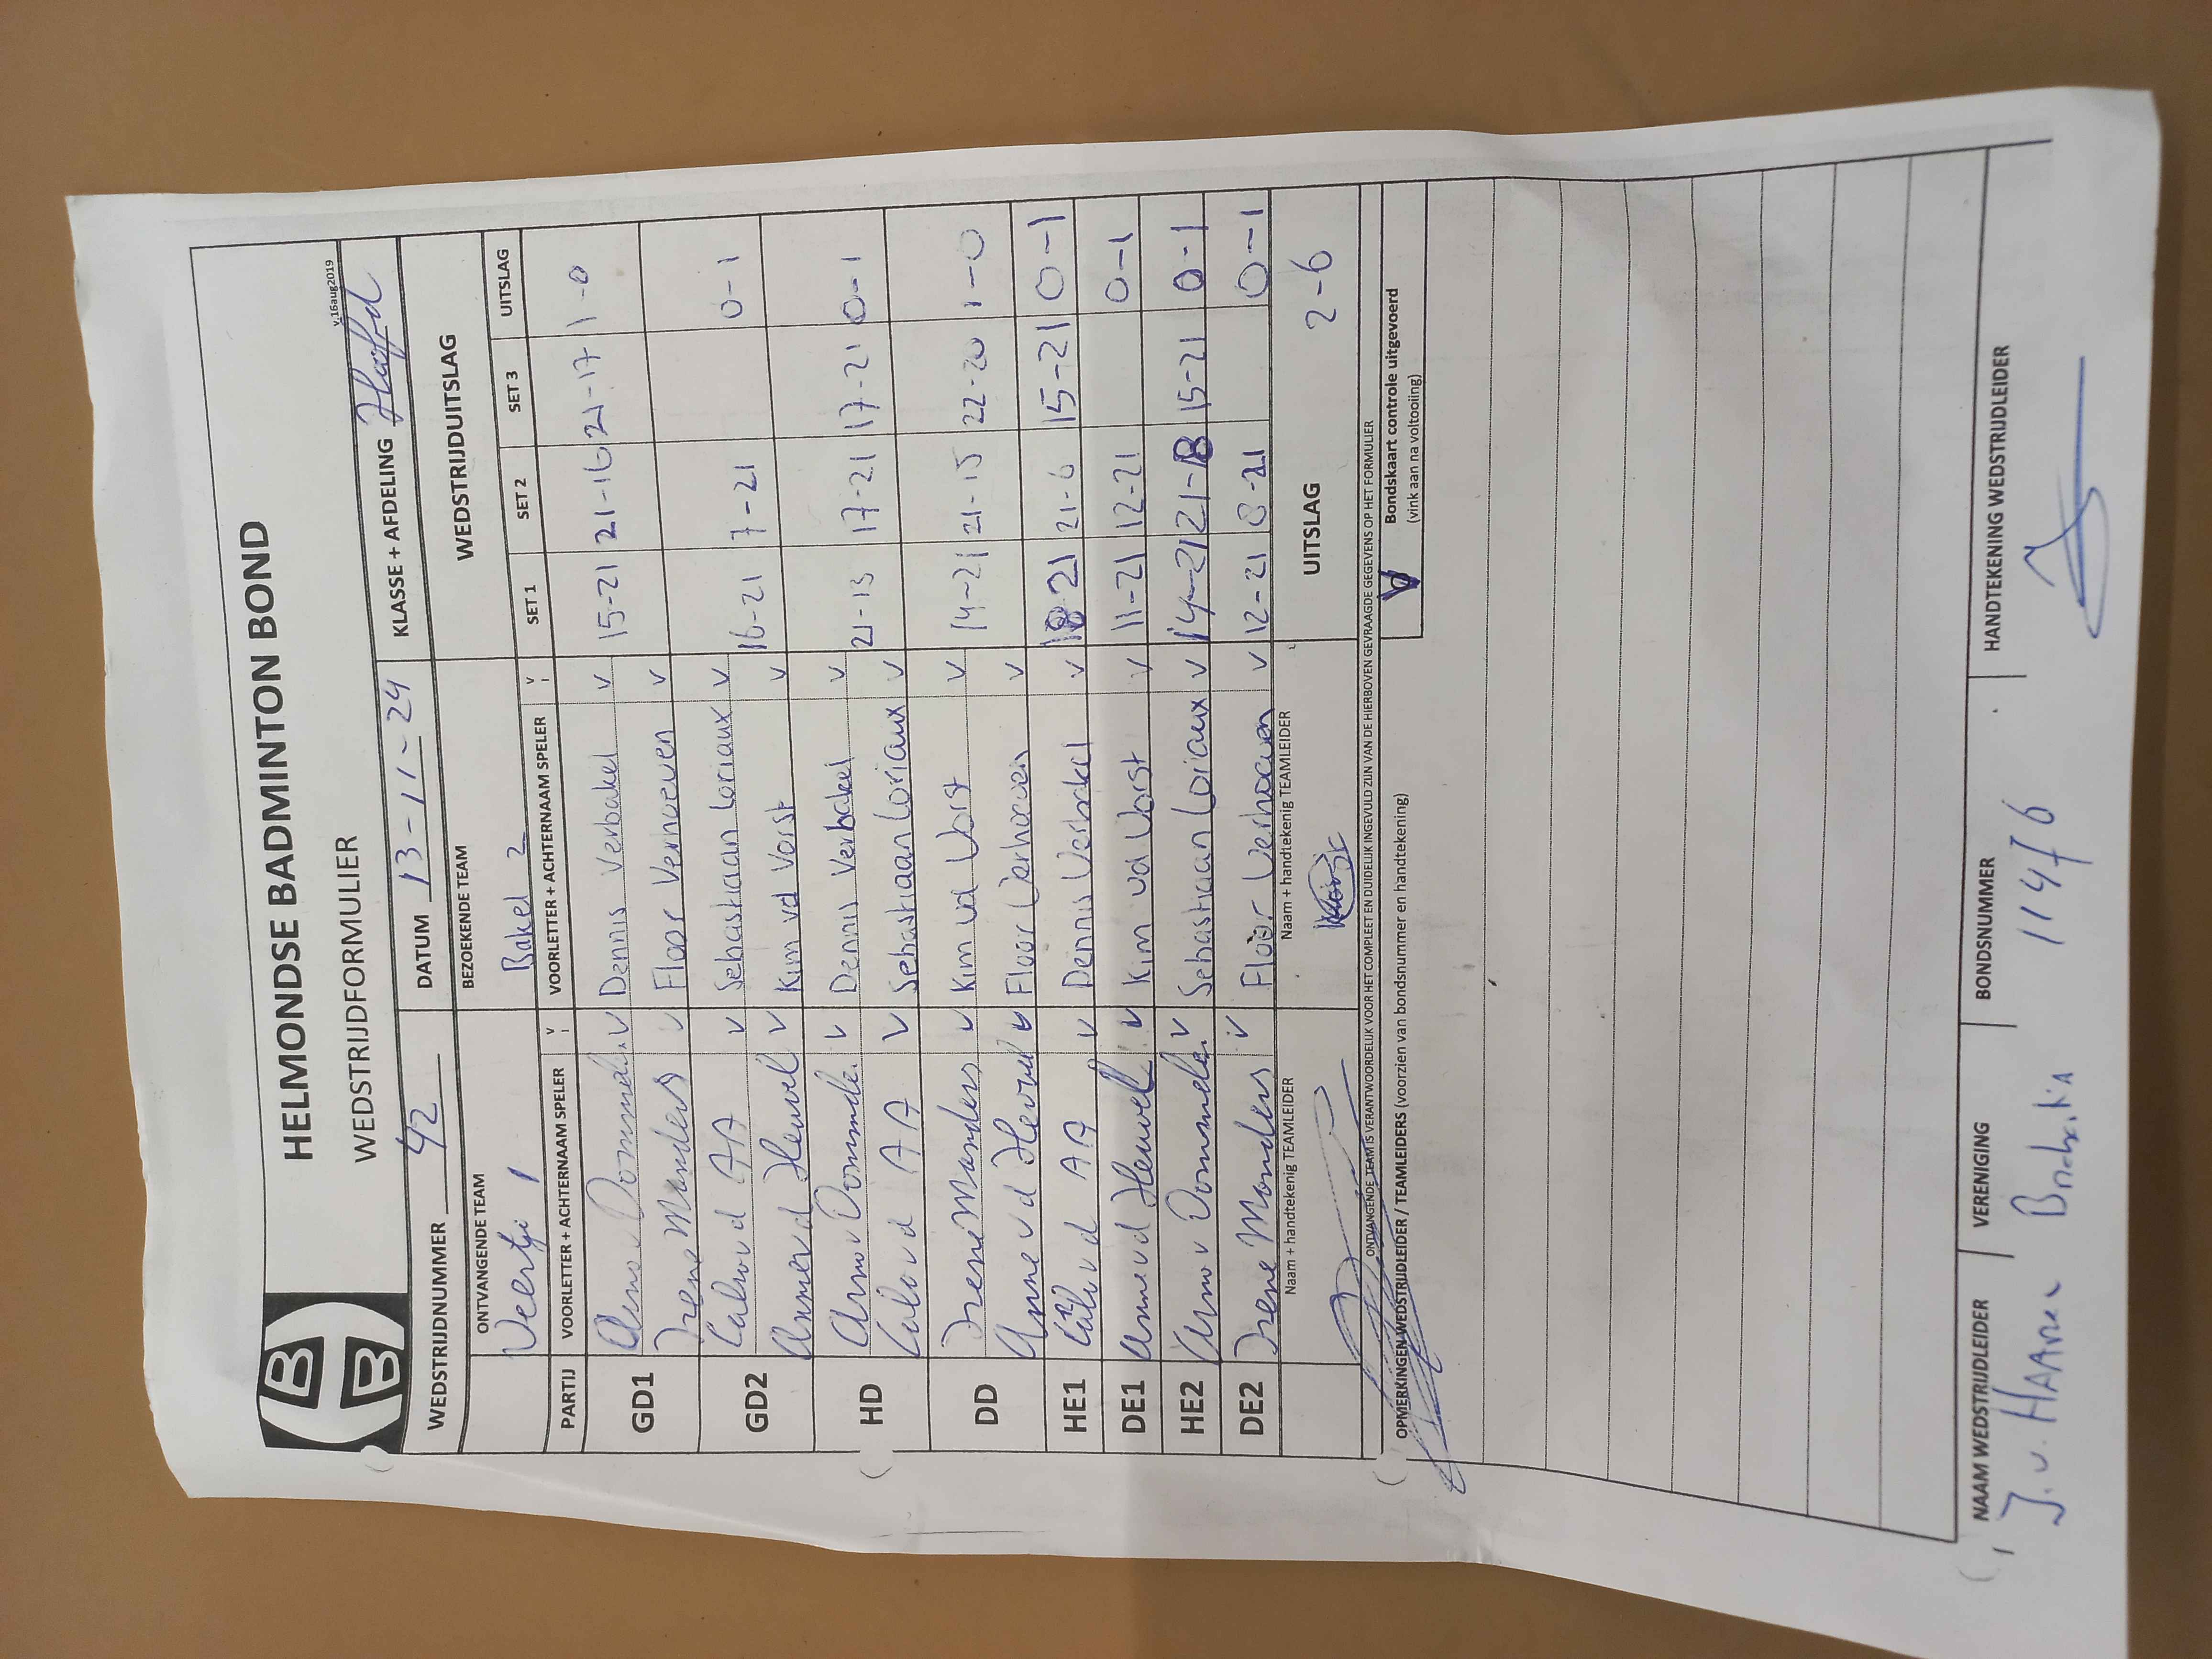 HELMONDSE BADMINTON BOND
WEDSTRIJDFORMULIER
v.16aug2019
WEDSTRIJDNUMMER 42 DATUM 13-11-24 KLASSE + AFDELING Hoofd
ONTVANGENDE TEAM BEZOEKENDE TEAM WEDSTRIJDUITSLAG
Veertje 1 Bakel 2
PARTIJ VOORLETTER + ACHTERNAAM SPELER V VOORLETTER + ACHTERNAAM SPELER V SET 1 SET 2 SET 3 UITSLAG
GD1 Arno v Dommele. v Dennis Verbakel v 15-21 21-16 21-17 1-0
Irene Manders v Floor Verhoeven v
GD2 Calvo vd AA v Sebastiaan Loriaux v 16-21 7-21 0-1
Anne vd Heuvel v Kim vd Vorst v
HD Arno v Dommele. v Dennis Verbakel v 21-13 17-21 17-21 0-1
Calvo vd AA v Sebastiaan Loriaux v
DD Irene Manders v Kim vd Vorst v 14-21 21-15 22-20 1-0
Anne vd Heuvel v Floor Verhoeven v
HE1 vd AA v Dennis Verbakel v 18-21 21-6 15-21 0-1
DE1 Anne vd Heuvel v Kim vd Vorst v 11-21 12-21 0-1
HE2 Arno v Dommele. v Sebastiaan Loriaux v 14-21 21-18 15-21 0-1
DE2 Irene Manders v Floor Verhoeven v 12-21 8-21 0-1
Naam + handtekenig TEAMLEIDER Naam + handtekenig TEAMLEIDER UITSLAG 2-6
ONTVANGENDE TEAM IS VERANTWOORDELIJK VOOR HET COMPLEET EN DUIDELIJK INGEVULD ZIJN VAN DE HIERBOVEN GEVRAAGDE GEGEVENS OP HET FORMULIER
OPMERKINGEN WEDSTRIJDLEIDER / TEAMLEIDERS (voorzien van bondsnummer en handtekening) V Bondskaart controle uitgevoerd
(vink aan na voltooiing)
NAAM WEDSTRIJDLEIDER VERENIGING BONDSNUMMER HANDTEKENING WEDSTRIJDLEIDER
J. v. HAAren 11476